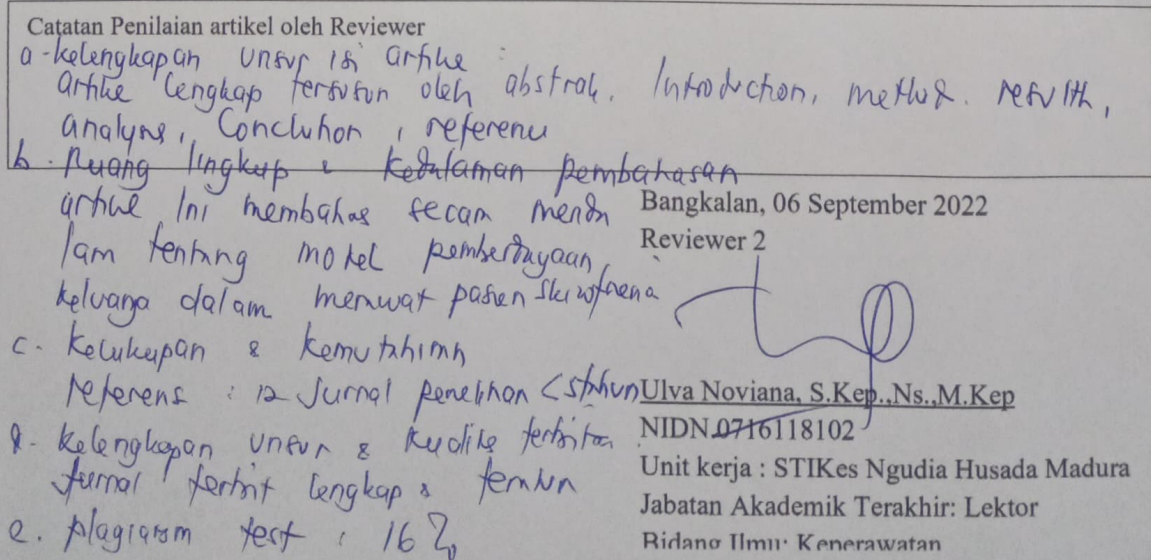 Catatan Penilaian artikel oleh Reviewer
a - kelengkapan unsur isi artike :
artike lengkap tersusun oleh abstrak, Introduction, method. result,
analysis, Conclusion, referenu
b. Ruang lingkup & kedalaman pembahasan
artike ini membahas secara menda
lam tentang model pemberdayaan
keluarga dalam merawat pasien skizofrenia
c. Kecukupan & kemutahiran
referens : 12 Jurnal penelitian < 5 tahun
d. kelengkapan unsur & kualits terbitan
Jurnal terbit lengkap &
e. plagiarsm test : 16 %
Bangkalan, 06 September 2022
Reviewer 2
Ulva Noviana, S.Kep.,Ns.,M.Kep
NIDN.0716118102
Unit kerja : STIKes Ngudia Husada Madura
Jabatan Akademik Terakhir: Lektor
Bidang Ilmu: Keperawatan